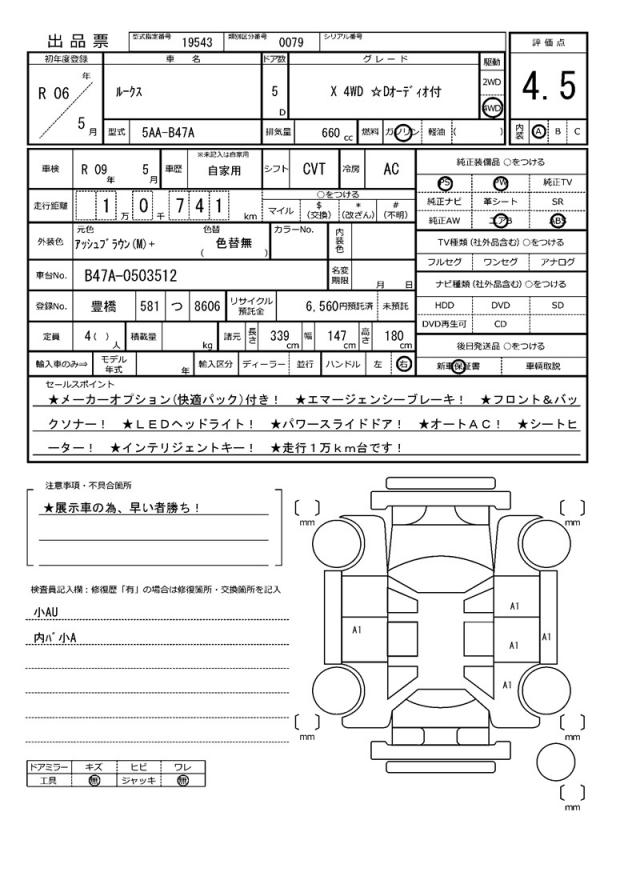 出品票
型式指定番号 19543 類別区分番号 0079 シリアル番号
評価点
4.5
初年度登録 車名 ドア数 グレード 駆動
R 06 年 5 月
ルークス
5 D
X 4WD ☆Dオーディオ付
2WD
4WD
型式 5AA-B47A 排気量 660 cc 燃料 ガソリン 軽油 ( )
内装 A B C
車検 R 09 年 5 月 車歴 ※未記入は自家用 自家用 シフト CVT 冷房 AC
走行距離 1 万 0 千 7 4 1 km
○をつける
マイル $(交換) *(改ざん) #(不明)
外装色 元色 アッシュブラウン(M)+ 色替 ( 色替無 ) カラーNo. 内装色
車台No. B47A-0503512 名変期限 月 日
登録No. 豊橋 581 つ 8606 リサイクル預託金 6,560円預託済 未預託
定員 4( )人 積載量 kg 諸元 長さ 339 cm 幅 147 cm 高さ 180 cm
輸入車のみ⇒ モデル年式 年 輸入区分 ディーラー 並行 ハンドル 左 右
純正装備品 ○をつける
PS PW 純正TV
純正ナビ 革シート SR
純正AW エアB ABS
TV種類(社外品含む)○をつける
フルセグ ワンセグ アナログ
ナビ種類(社外品含む)○をつける
HDD DVD SD
DVD再生可 CD
後日発送品 ○をつける
新車保証書 車輌取説
セールスポイント
★メーカーオプション(快適パック)付き! ★エマージェンシーブレーキ! ★フロント&バッ
クソナー! ★LEDヘッドライト! ★パワースライドドア! ★オートAC! ★シートヒ
ーター! ★インテリジェントキー! ★走行1万km台です!
注意事項・不具合箇所
★展示車の為、早い者勝ち!
検査員記入欄:修復歴「有」の場合は修復箇所・交換箇所を記入
小AU
内バ小A
ドアミラー キズ ヒビ ワレ
工具 無 ジャッキ 無
[ ] mm
[ ] mm
A1
A1
A1
A1
A1
[ ] mm
[ ] mm
[ ] mm